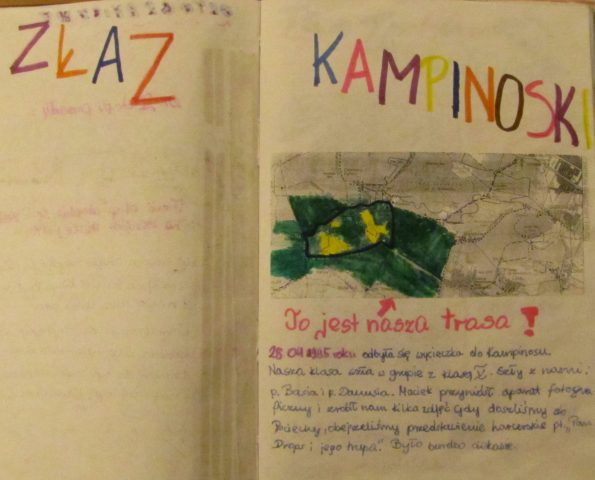 ZŁAZ
KAMPINOSKI
To jest nasza trasa!
28 04 1995 roku odbyła się wycieczka do Kampinosu.
Nasza klasa szła w grupie z klasą V. Szły z nami:
p. Basia i p. Danusia. Maciek przyniósł aparat fotogra
ficzny i zrobił nam kilka zdjęć. Gdy doszliśmy do
obejrzeliśmy przedstawienie harcerskie pt. „Pan
i jego trupa." Było bardzo ciekawie.